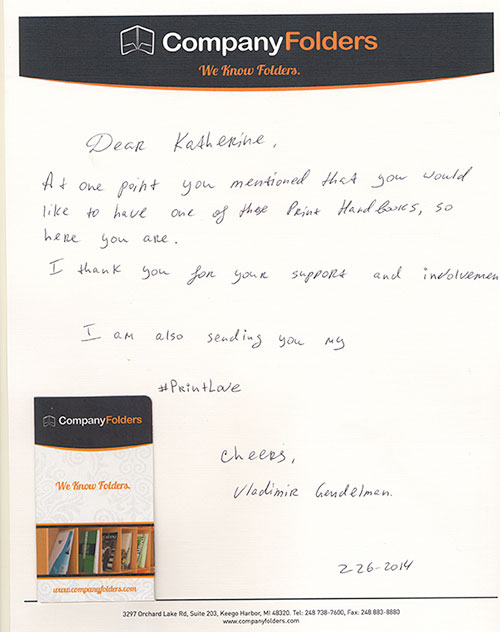 CompanyFolders
We Know Folders.
Dear Katherine,
At one point you mentioned that you would
like to have one of these Print Handbooks, so
here you are.
I thank you for your support and involvemen
I am also sending you my
#PrintLove
CompanyFolders
We Know Folders.
www.companyfolders.com
Cheers,
Vladimir Gendelman.
2-26-2014
3297 Orchard Lake Rd, Suite 203, Keego Harbor, MI 48320. Tel: 248 738-7600, Fax: 248.883-8880
www.companyfolders.com